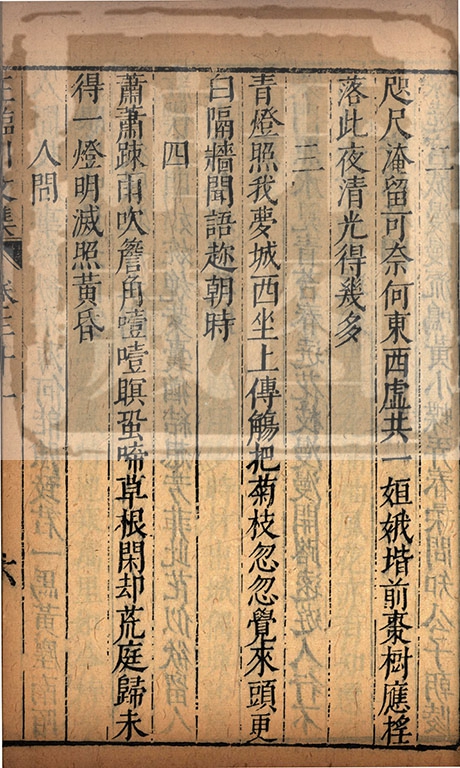 二
咫尺淹留可奈何東西虛共一姮娥堦前棗樹應搖
落此夜清光得幾多
三
青燈照我夢城西坐上傳觴把菊枝忽忽覺來頭更
白隔牆聞語趂朝時
四
蕭蕭疎雨吹簷角噎噎暝蛩啼草根閑却荒庭歸未
得一燈明滅照黃昏
人間
王臨川文集
卷三十一
六